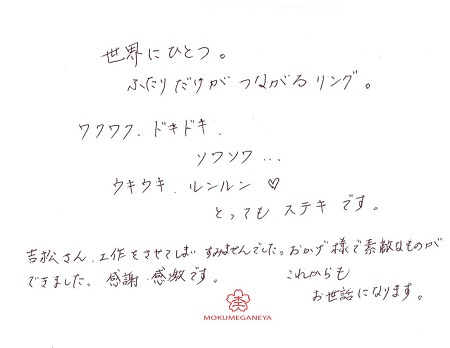 世界にひとつ。
ふたりだけが つながるリング。
ワクワク、ドキドキ、
ソワソワ...
ウキウキ、ルンルン♡
とっても ステキ です。
吉松さん、工作をさせてしまい すみませんでした。おかげ様で素敵なものが
できました。感謝・感激です。 これからも
お世話になります。
MOKUMEGANEYA